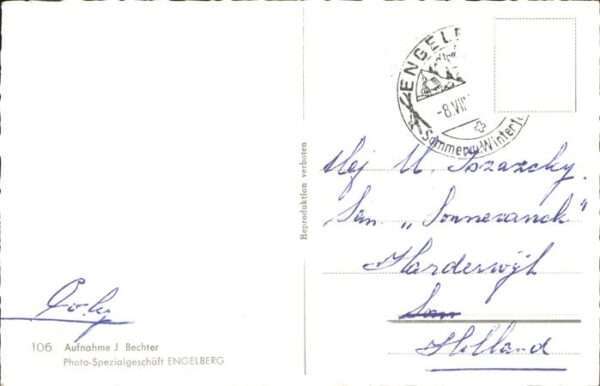 ENGELB
-8.VII
Sommer u. Winter
Reproduktion verboten
Mej M.
San „Sonnevanck"
Harderwijk
San
Holland
106 Aufnahme J. Bechter
Photo-Spezialgeschäft ENGELBERG